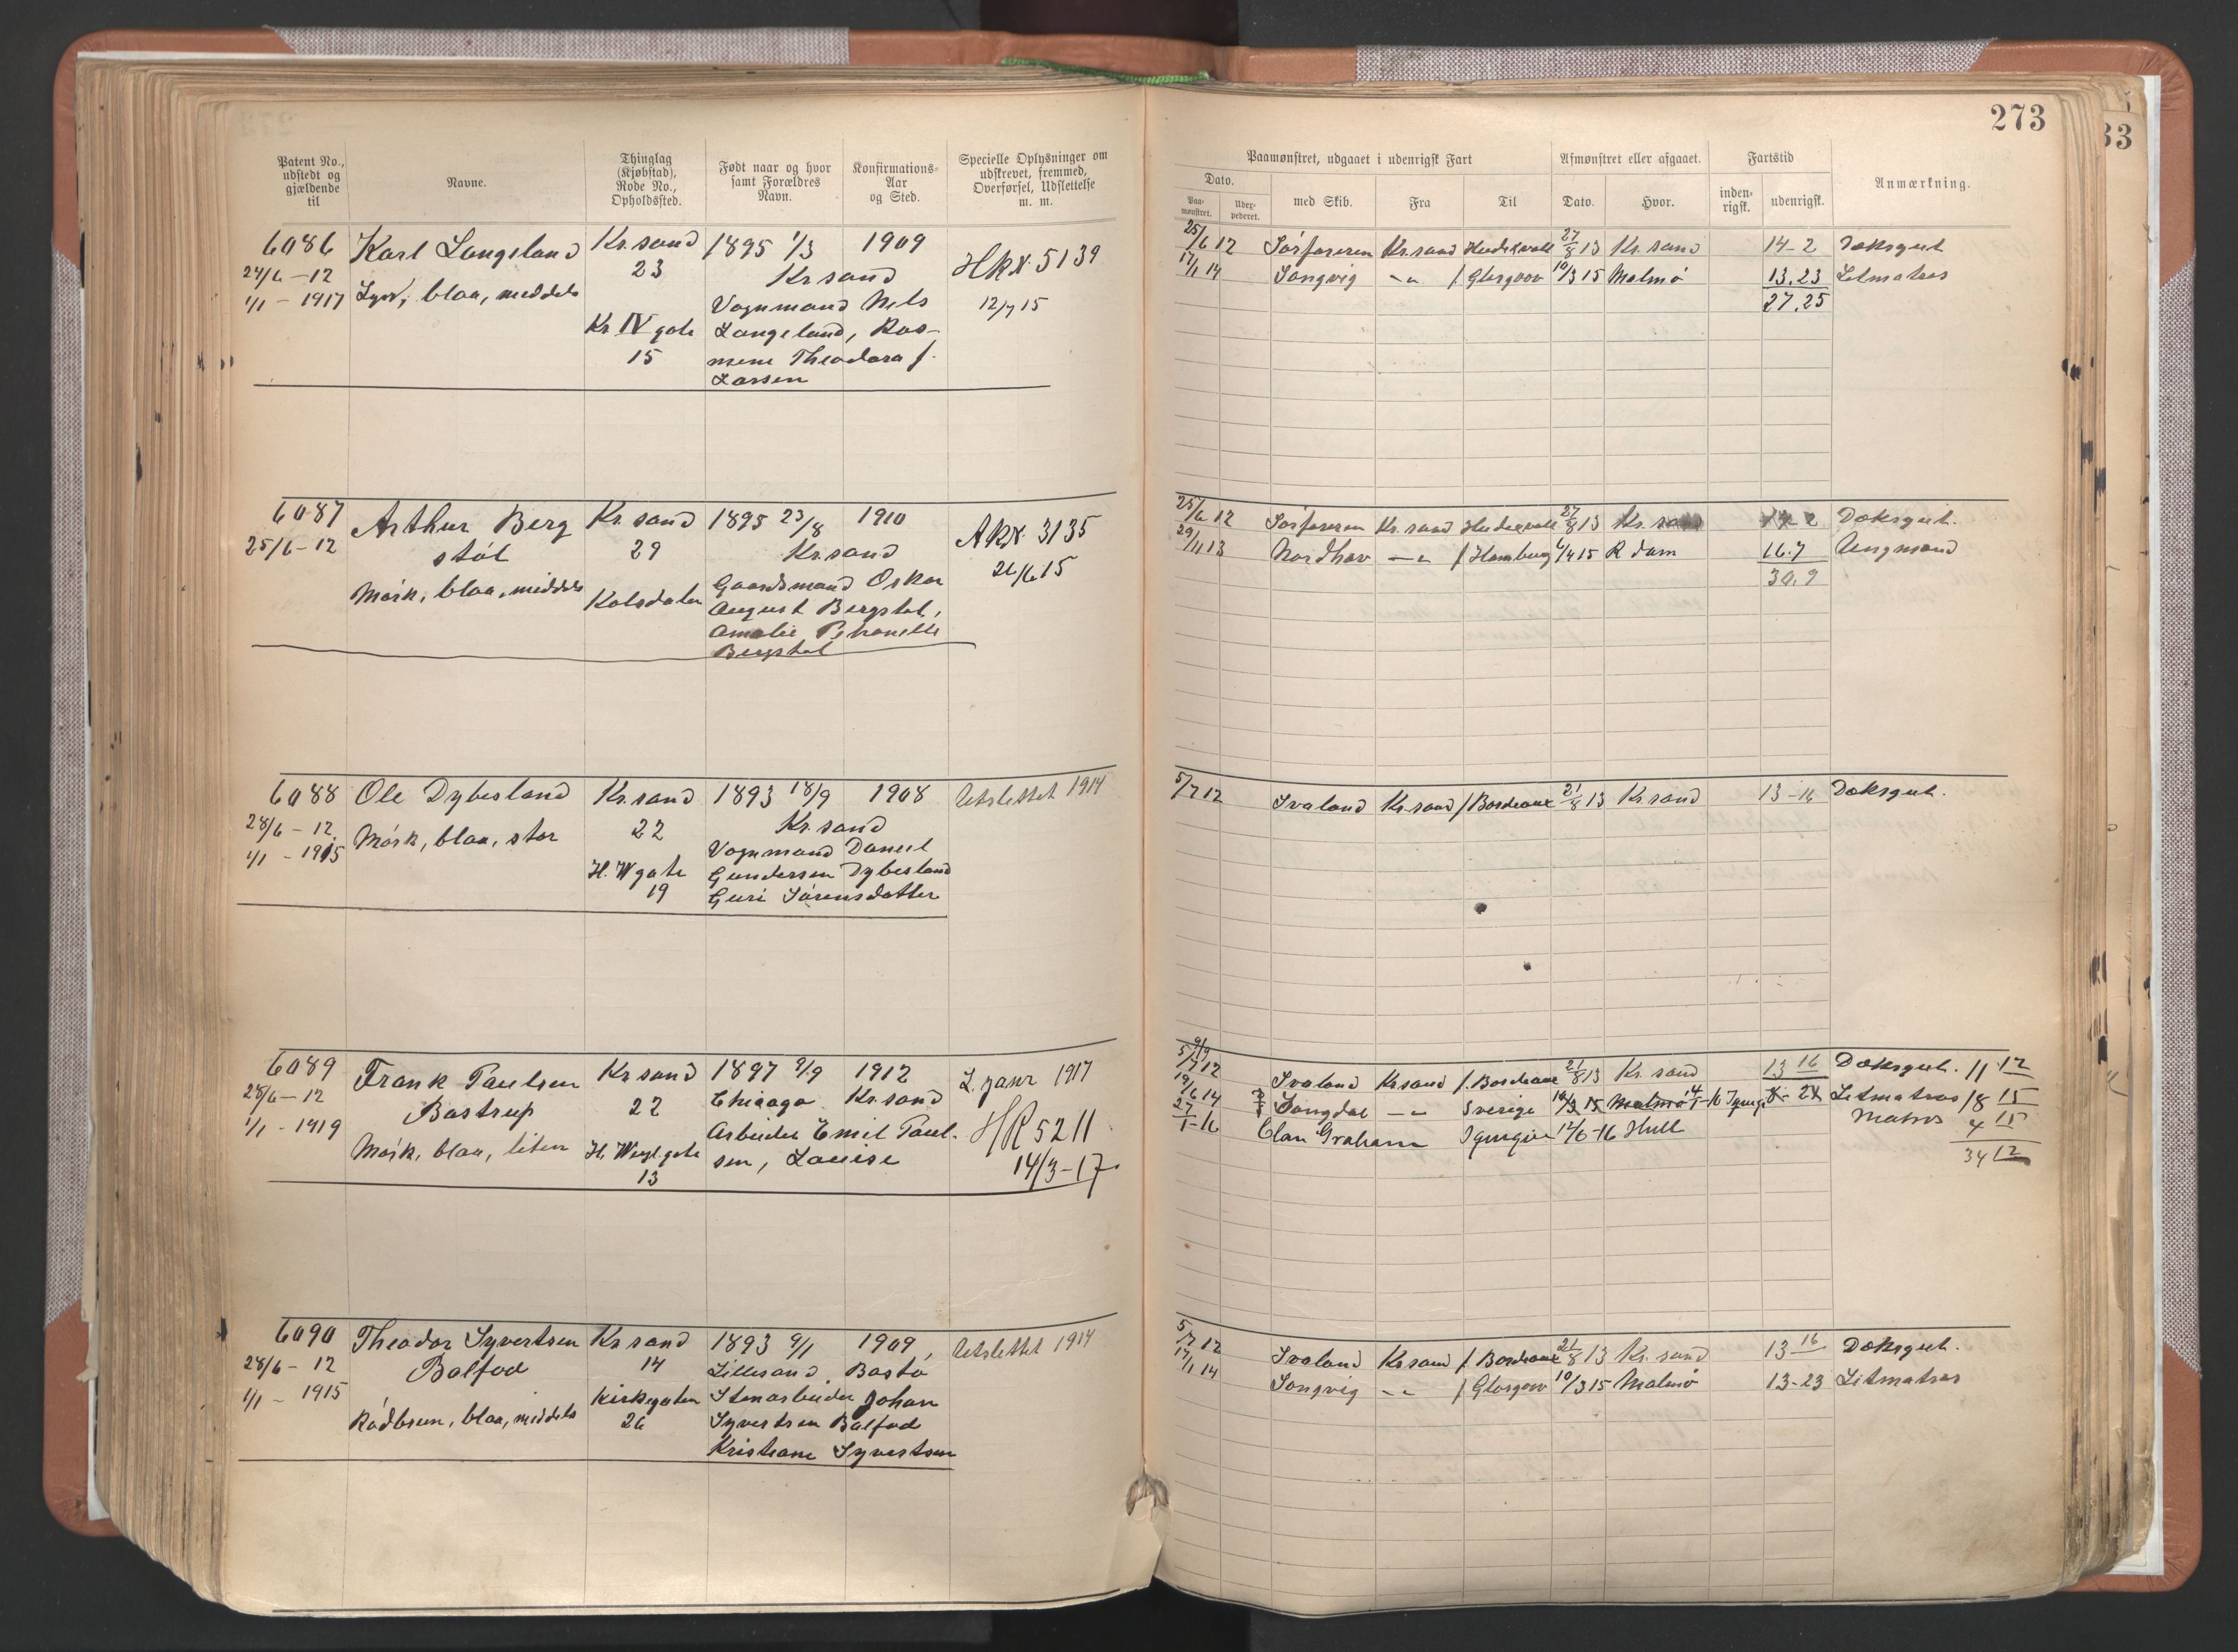 273
Patent No., udstedt og gjældende til
Navne.
Thinglag (Kjøbstad), Rode No., Opholdssted.
Født naar og hvor samt Forældres Navn.
Konfirmations-Aar og Sted.
Specielle Oplysninger om udskrevet, fremmed, Overførsel, Udslettelse m. m.
Paamønstret, udgaaet i udenrigsk Fart
Afmønstret eller afgaaet.
Fartstid
Anmærkning.
Dato.
Paa-mønstret.
Uder-pederet.
med Skib.
Fra
Til
Dato.
Hvor.
inden-rigsk.
udenrigsk.
6086 Karl Langeland Kr.sand 1895 1/3 1909
24/6 - 12 23 Kr sand HRN. 5139
1/1 - 1917 Lys, blaa, middels Vognmand Nels 12/7 15
Kr IV gate Langeland, Ras-
15 mine Theodora f.
Larsen
25/6 12 Sørfareren Kr.sand 27/8 13 Kr. sand 14-2 Dæksgut
17/1 14 Songvig -"- f. Glasgow 10/3 15 Malmø 13.23 Letmatros
27.25
6087 Arthur Berg Kr. sand 1895 23/8 1910
25/6 - 12 støl 29 Kr.sand ARN. 3135
Mørk, blaa, middels Kolsdalen Gaardsmand Oskar 26/6 15
August Bergstøl,
Amalie Petronelle
Bergstøl
25/6 12 Sørfareren Kr. sand 27/8 13 Kr. sand 14-2 Dæksgut.
29/11 13 Nordhav -"- f Hamburg 6/4 15 R dam 16.7 Ungmand
30.9
6088 Ole Dybesland Kr.sand 1893 18/9 1908 Utslettet 1914
28/6 - 12. 22 Kr.sand
1/1 - 1915 Mørk, blaa, stor Vognmand Daniel
H. W gate Gundersen Dybesland
19 Guri Sørensdatter
5/7 12 Svaland Kr.sand f Bordeaux 21/8 13 Kr sand 13-16 Dæksgut.
6089 Frank Paulsen Kr sand 1897 9/9 1912 L. janr 1917
28/6 - 12 Bastrup 22 Chicago Kr.sand
1/1 - 1919 Arbeider Emil Paul- HR 5211
Mørk, blaa, liten H. Wergl. gate sen, Louise 14/3-17.
13
9/9
5/7 12 Svaland Kr.sand f. Bordeaux 21/8 13 Kr. sand 13 16 Dæksgut. 11 12
19/6 14 Songdal -"- Sverige 10/3 15 Malmø Letmatros 18 15
27/1-16 Clan Graham 12/6-16 Hull Matros 4 15
34 12
6090 Theodor Syvertsen Kr sand 1893 9/1 1909, Utslettet 1914
28/6 - 12 Balfod 14 Lillesand, Bastø
1/1 - 1915 Kirkegaten Stenarbeider Johan
Rødbrun, blaa, middels 26 Syvertsen Balfod
Kristiane Syvertsen
5/7 12 Svaland Kr.sand f. Bordeaux 21/8 13 Kr. sand 13 16 Dæksgut.
17/1 14 Songvig -"- f Glasgow 10/3 15 Malmø 13-23 Letmatros